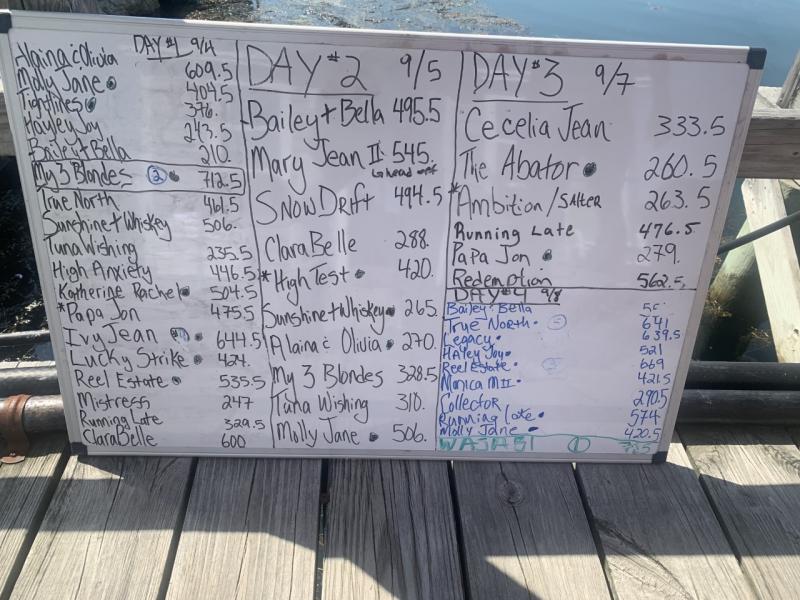 DAY #1 9/4
Alaina & Olivia 609.5
Molly Jane 404.5
Tightlines 376.
Hayley Joy 243.5
Bailey + Bella 210.
My 3 Blondes 2 712.5
True North 461.5
Sunshine + Whiskey 506.
Tuna Wishing 235.5
High Anxiety 446.5
Katherine Rachel 504.5
*Papa Jon 475.5
Ivy Jean 644.5
Lucky Strike 424.
Reel Estate 535.5
Mistress 247
Running Late 329.5
Clara Belle 600
DAY #2 9/5
Bailey + Bella 495.5
Mary Jean II 545.
w/head off
Snow Drift 494.5
Clara Belle 288.
*High Test 420.
Sunshine + Whiskey 265.
Alaina & Olivia 270.
My 3 Blondes 328.5
Tuna Wishing 310.
Molly Jane 506.
DAY #3 9/7
Cecelia Jean 333.5
The Abator 260.5
*Ambition/SALTER 263.5
Running Late 476.5
Papa Jon 279.
Redemption 562.5
DAY #4 9/8
Bailey + Bella
True North 641
Legacy 639.5
Hayley Joy 521
Reel Estate 669
Monica M II 421.5
Collector 290.5
Running Late 574
Molly Jane 420.5
WASABI 1